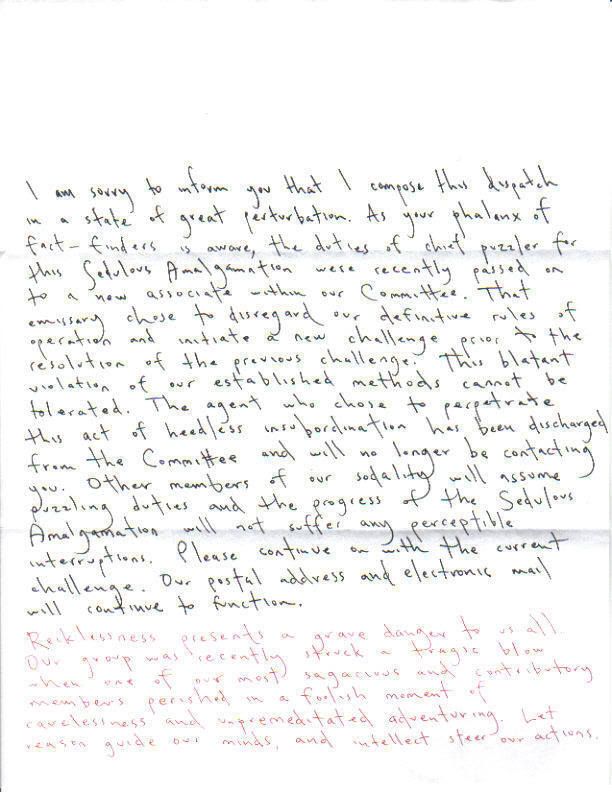 I am sorry to inform you that I compose this dispatch
in a state of great perturbation. As your phalanx of
fact-finders is aware, the duties of chief puzzler for
this Sedulous Amalgamation were recently passed on
to a new associate within our Committee. That
emissary chose to disregard our definitive rules of
operation and initiate a new challenge prior to the
resolution of the previous challenge. This blatant
violation of our established methods cannot be
tolerated. The agent who chose to perpetrate
this act of heedless insubordination has been discharged
from the Committee and will no longer be contacting
you. Other members of our sodality will assume
puzzling duties and the progress of the Sedulous
Amalgamation will not suffer any perceptible
interruptions. Please continue on with the current
challenge. Our postal address and electronic mail
will continue to function.
Recklessness presents a grave danger to us all.
Our group was recently struck a tragic blow
when one of our most sagacious and contributory
members perished in a foolish moment of
carelessness and unpremeditated adventuring. Let
reason guide our minds, and intellect steer our actions.